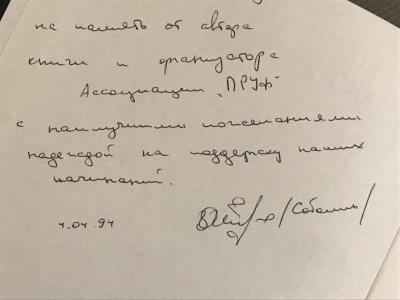 на память от автора
книги и организатора
Ассоциации „ПРУФ"
с наилучшими пожеланиями
надеждой на поддержку наших
начинаний.
4.04.94